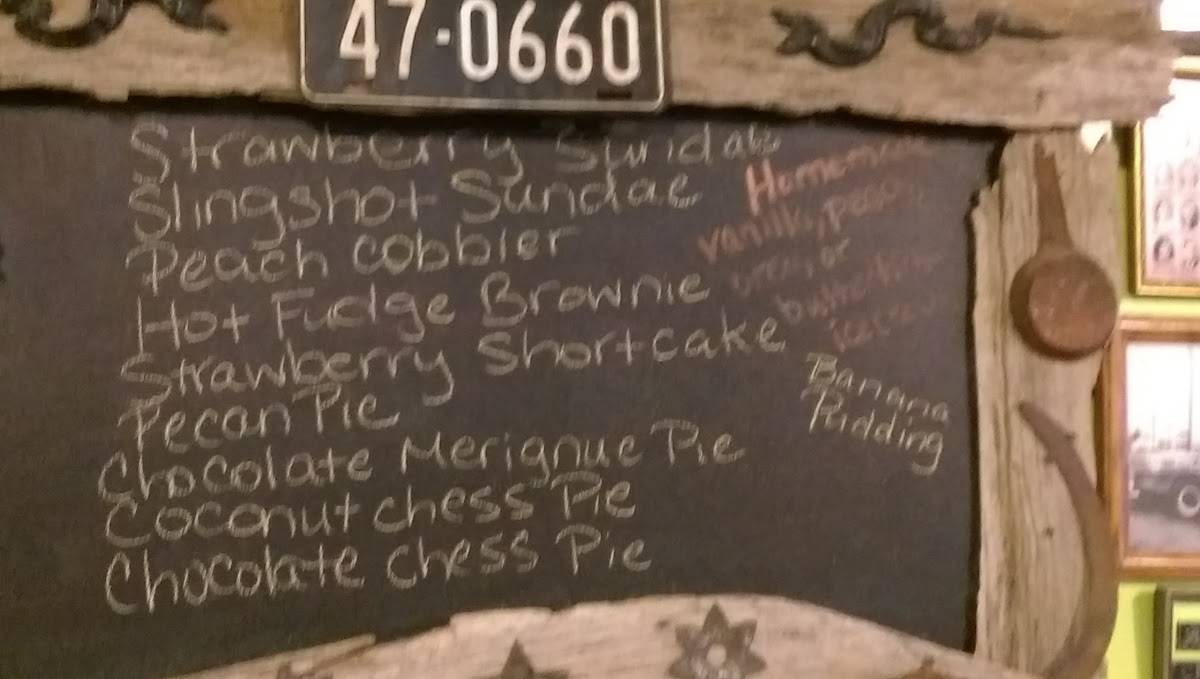 47-0660
Strawberry Sundae
Slingshot Sundae
Peach cobbler
Hot Fudge Brownie
Strawberry Shortcake
Pecan Pie
Chocolate Merignue Pie
Coconut chess Pie
Chocolate chess Pie
Homemade
vanilla, peach,
or
Banana
Pudding